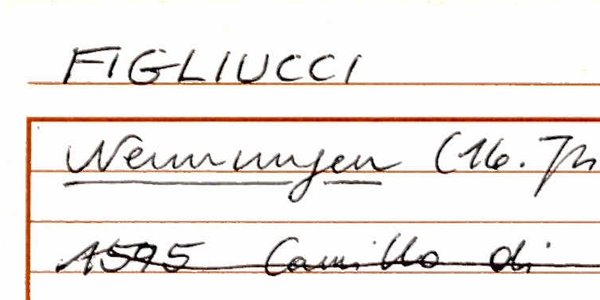 FIGLIUCCI
Nennungen (16. Jh
1595 Camillo di